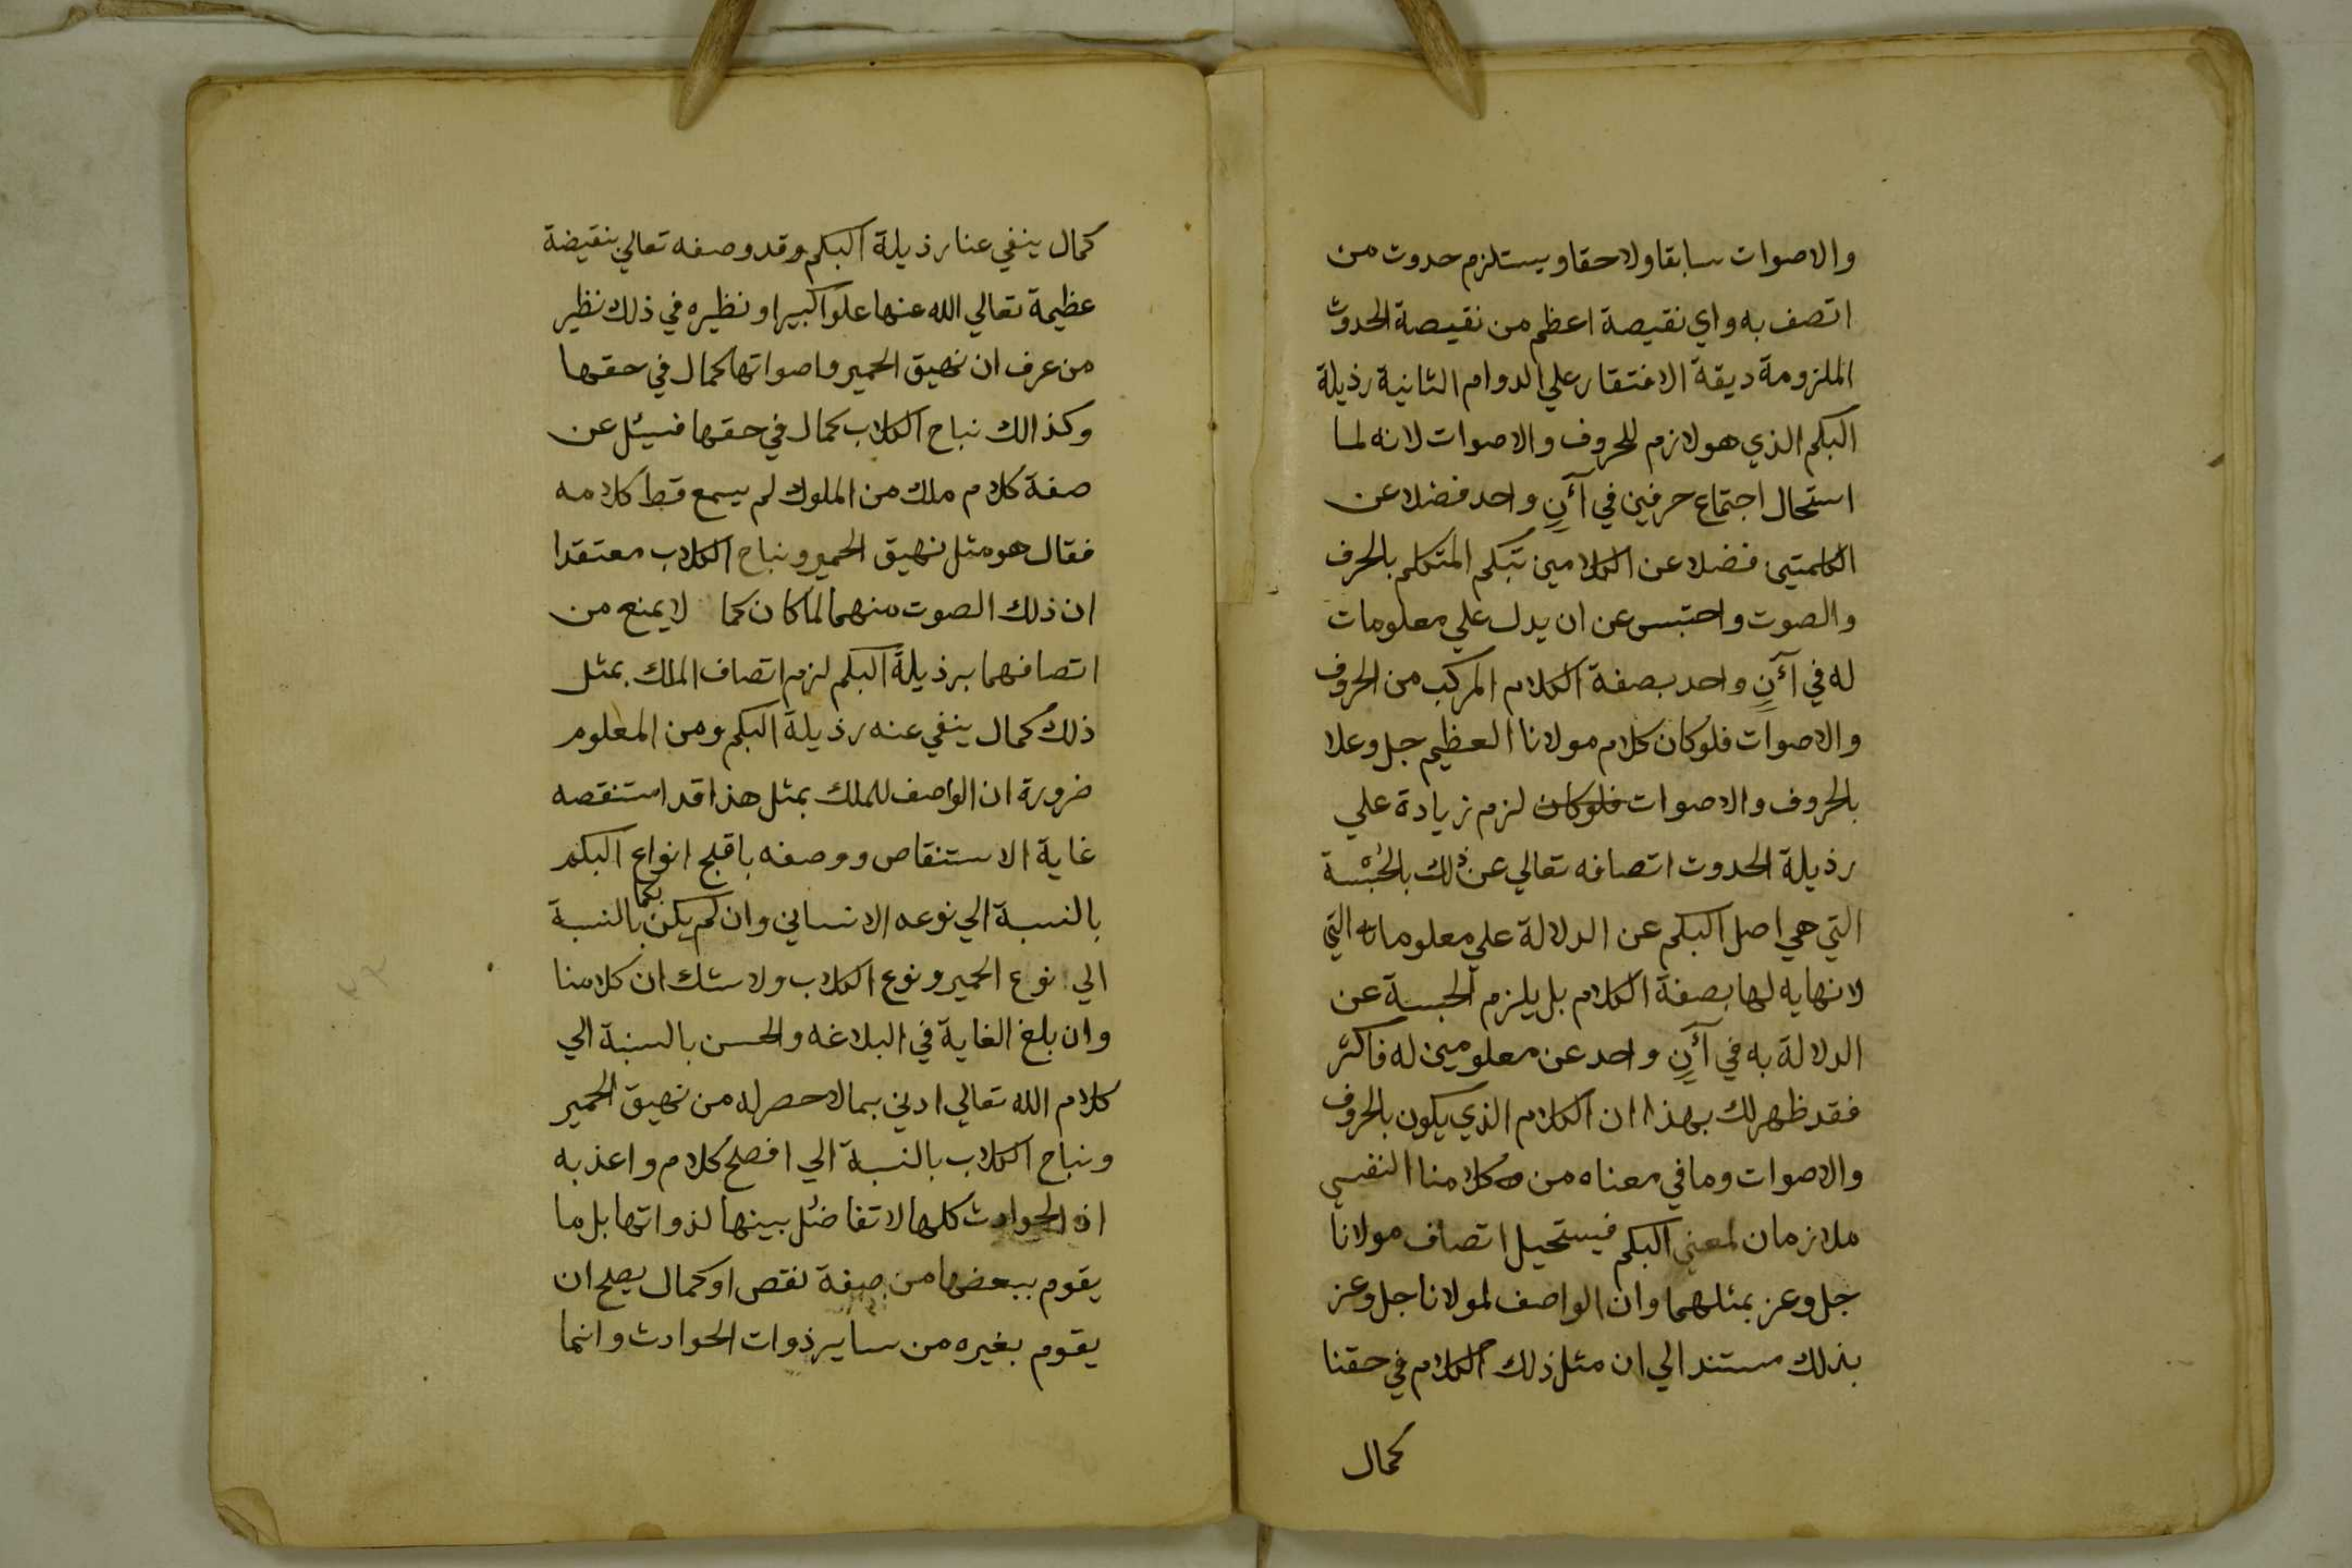 والاصوات سابقا ولاحقا ويستلزم حدوت من
اتصف به واي نقيصة اعظم من نقيصة الحدوث
الملزومة ديقة الافتقار علي الدوام الثانية رذيلة
البكم الذي هو لازم للحروف والاصوات لانه لما
استحال اجتماع حرفين في آنٍ واحد فضلا عن
الكلمتين فضلا عن الكلامين تبكم المتكلم بالحرف
والصوت واحتبس عن ان يدل علي معلومات
له في آنٍ واحد بصفة الكلام المركب من الحروف
والاصوات فلو كان كلام مولانا العظيم جل وعلا
بالحروف والاصوات فلو كان لزم زيادة علي
رذيلة الحدوت اتصافه تعالي عن ذلك بالحُبْسة
التي هي اصل البكم عن الدلالة علي معلوماته التي
لا نهايه لها بصفة الكلام بل يلزم الحبسة عن
الدلالة به في آنٍ واحد عن معلومين له فاكثر
فقد ظهر لك بهذا ان الكلام الذي يكون بالحروف
والاصوات وما في معناه من كلامنا النفسي
ملازمان لمعني البكم فيستحيل اتصاف مولانا
جل وعز بمثلهما وان الواصف لمولانا جل وعز
بذلك مستندا الي ان مثل ذلك الكلام في حقنا
كمال
كمال ينفي عنا رذيلة البكم وقد وصفه تعالي بنقيضة
عظيمة تعالي الله عنها علوا كبيرا ونظيره في ذلك نظير
من عرف ان نهيق الحمير واصواتها كمال في حقها
وكذالك نباح الكلاب كمال في حقها فسئل عن
صفة كلام ملك من الملوك لم يسمع قط كلامه
فقال هو مثل نهيق الحمير ونباح الكلاب معتقدا
ان ذلك الصوت منهما لما كان كما لا يمنع من
اتصافهما برذيلة البكم لزم اتصاف الملك بمثل
ذلك كمال ينفي عنه رذيلة البكم ومن المعلوم
ضرورة ان الواصف للملك بمثل هذا قد استنقصه
غاية الاستنقاص ووصفه باقبح انواع البكم
بالنسبة الي نوعه الانساني وان لم يكن بكما بالنسبة
الي نوع الحمير ونوع الكلاب ولا شك ان كلامنا
وان بلغ الغاية في البلاغه والحسن بالسنبة الي
كلام الله تعالي ادني بمالا حصر له من نهيق الحمير
ونباح الكلاب بالنسبة الي افصح كلام واعذبه
اذ الحوادث كلها لا تفاضل بينها لذواتها بل ما
يقوم ببعضها من صفة نقص او كمال يصلح ان
يقوم بغيره من ساير ذوات الحوادث وانما